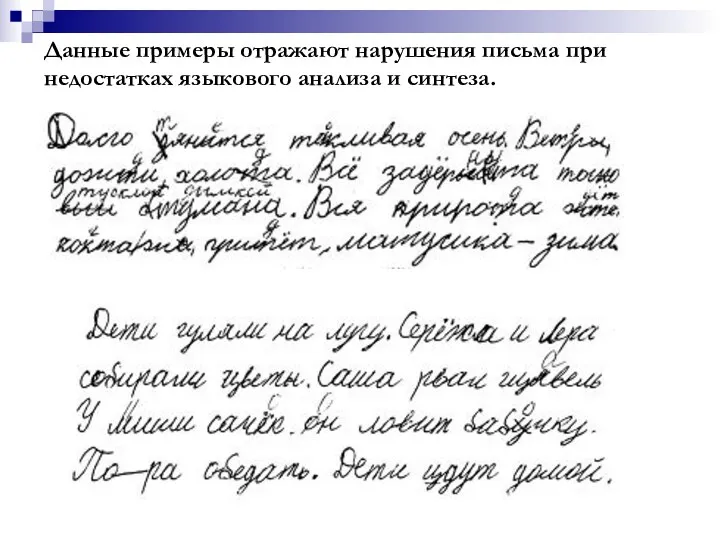 Данные примеры отражают нарушения письма при
недостатках языкового анализа и синтеза.
Долго тянется тоскливая осень. Ветры,
дожди, холода. Всё задёрнута
тусклой дымкой
тумана. Вся природа
когда придёт, матусика – зима.
Дети гуляли на лугу. Серёжа и Лера
собирали цветы. Саша рвал щавель
У Миши сачёк. Он ловит бабочку.
По—ра обедать. Дети идут домой.